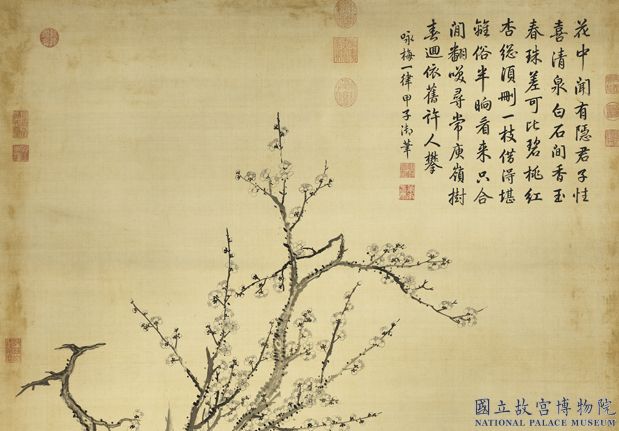 花中聞有隱君子性
喜清泉白石間香玉
春珠差可比碧桃紅
杏總須刪一枝借得堪
離俗半晌看來只合
閒翻咲尋常庾嶺樹
春迴依舊許人攀
咏梅一律甲子御筆
國立故宮博物院
NATIONAL PALACE MUSEUM